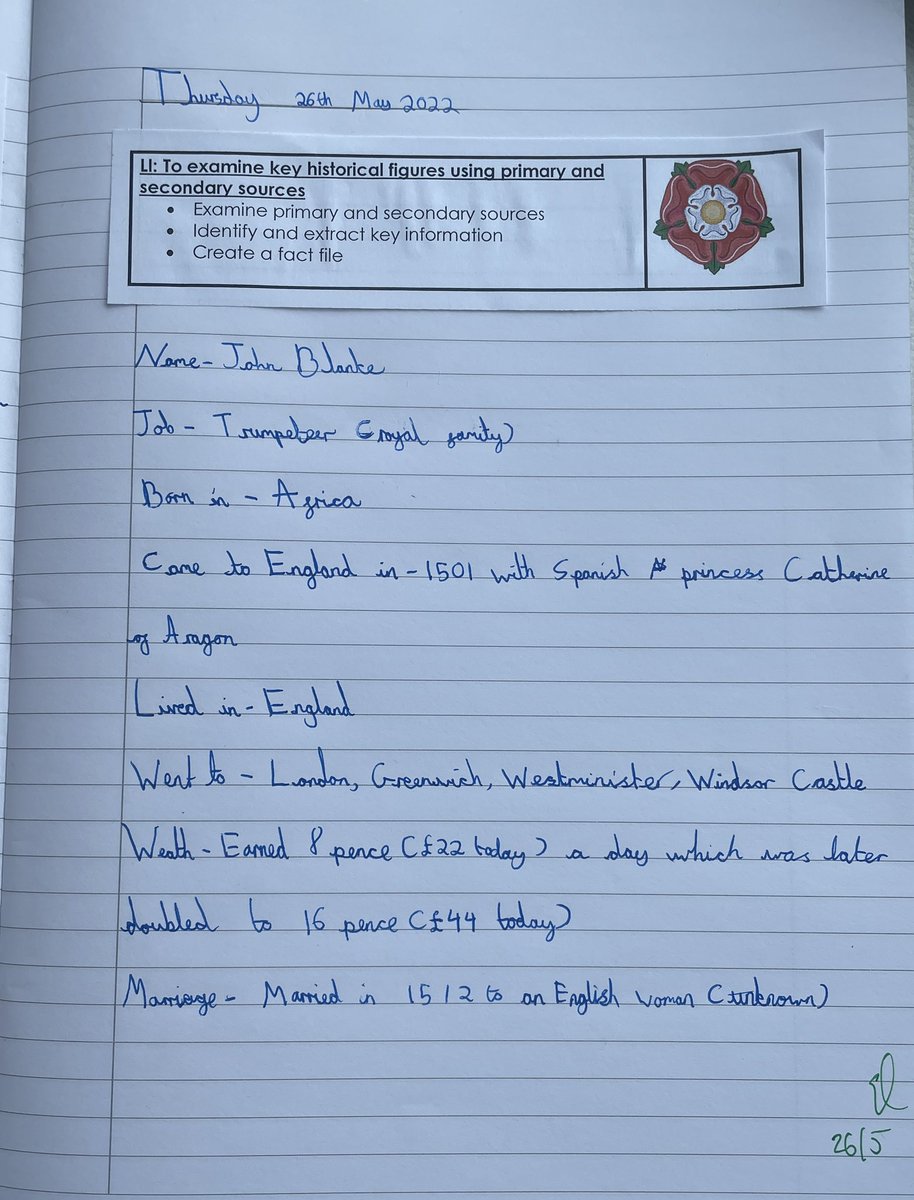 Thursday 26th May 2022
LI: To examine key historical figures using primary and
secondary sources
• Examine primary and secondary sources
• Identify and extract key information
• Create a fact file
Name - John Blanke
Job - Trumpeteer (royal family)
Born in - Africa
Came to England in - 1501 with Spanish princess Catherine
of Aragon
Lived in - England
Went to - London, Greenwich, Westminister, Windsor Castle
Weath - Earned 8 pence (£22 today) a day which was later
doubled to 16 pence (£44 today)
Marriage - Married in 1512 to an English woman (unknown)
26/5